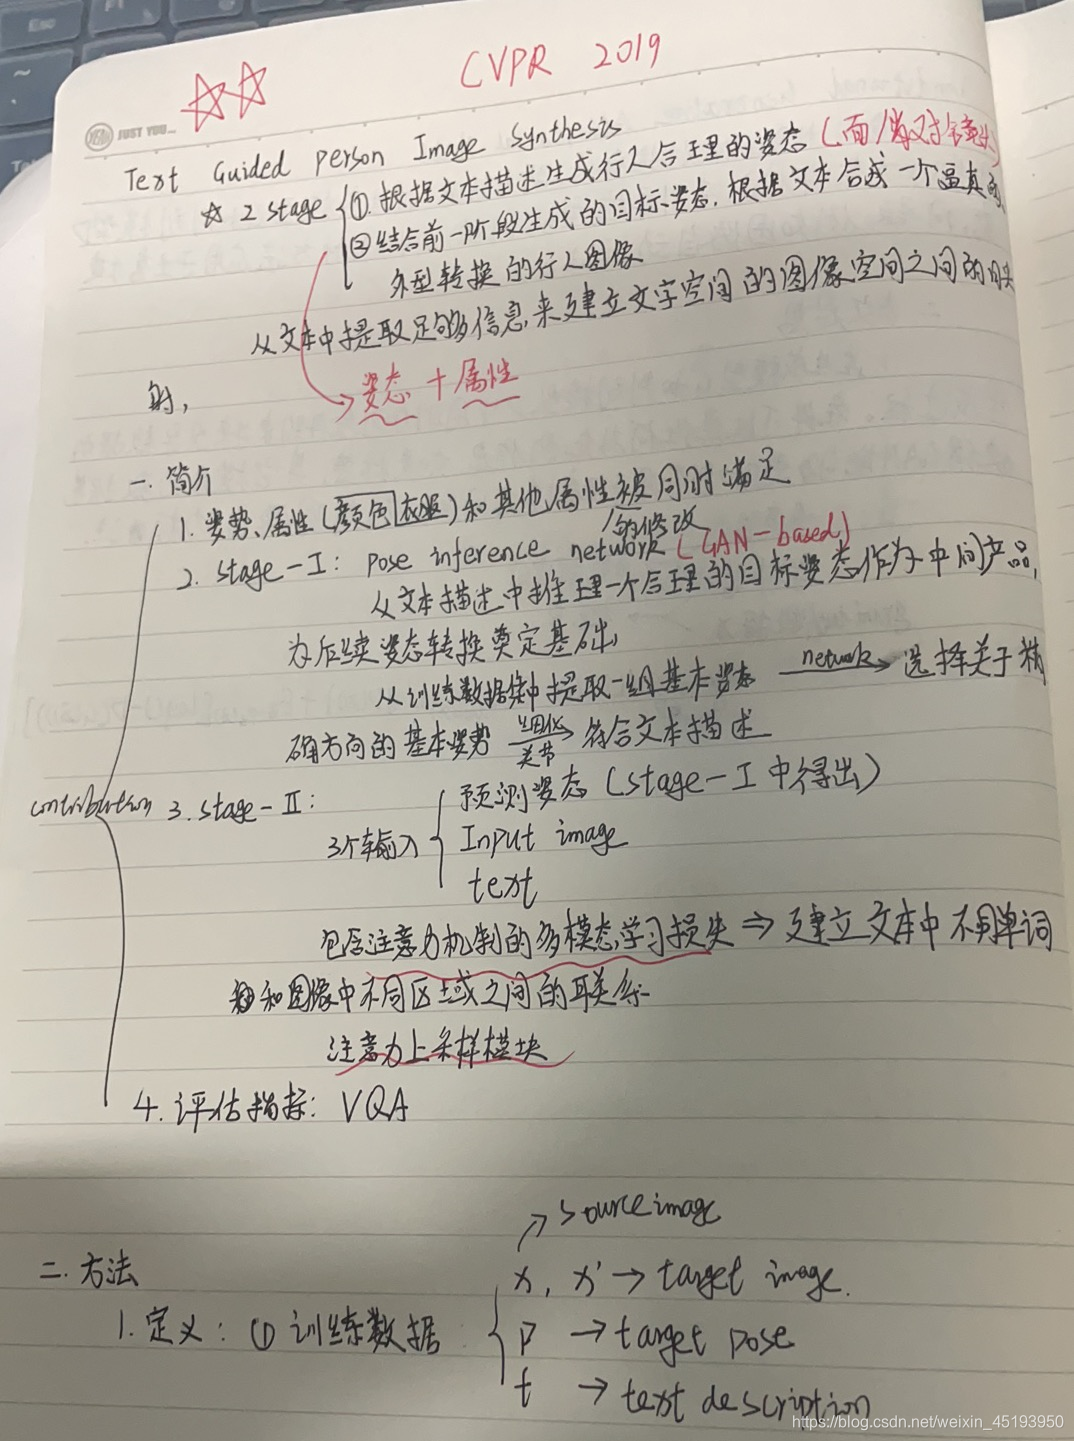 CVPR 2019
JUST YOU...
Text Guided Person Image Synthesis
☆ 2 stage ①. 根据文本描述生成行人合理的姿态
②结合前一阶段生成的目标姿态, 根据文本合成一个逼真
外型转换的行人图像
从文本中提取足够多信息,来建立文字空间的图像空间之间的
射,
姿态 + 属性
一. 简介
1. 姿势、属性(颜色|衣服)和其他属性被同时满足
的修改
2. stage-I: pose inference network (GAN-based)
从文本描述中推理一个合理的目标姿态作为中间产品,
为后续姿态转换奠定基础
从训练数据集中提取一组基本姿态 network→ 选择关于精
确方向的基本姿势 细化关节→ 符合文本描述
contribution 3. stage-II:
预测姿态 (stage-I 中得出)
3个输入 Input image
text
包含注意力机制的多模态学习损失 ⇒ 建立文本中不同单词
和图像中不同区域之间的联系
注意力上采样模块
4. 评估指标: VQA
→ source image
二. 方法
x, x' → target image.
1. 定义: ① 训练数据 p → target pose
t → text description
https://blog.csdn.net/weixin_45193950